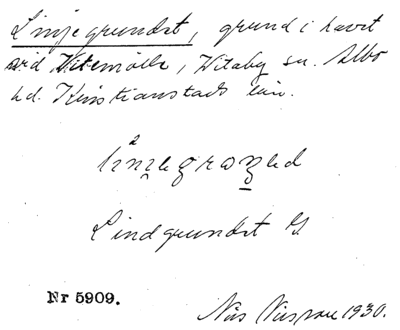 Linjegrundet, grund i havet
vid Vitemölle, Vitaby sn. Albo
hd. Kristianstads län.
Lindgrundet G.
Nr 5909.
Nils Nilsson 1930.